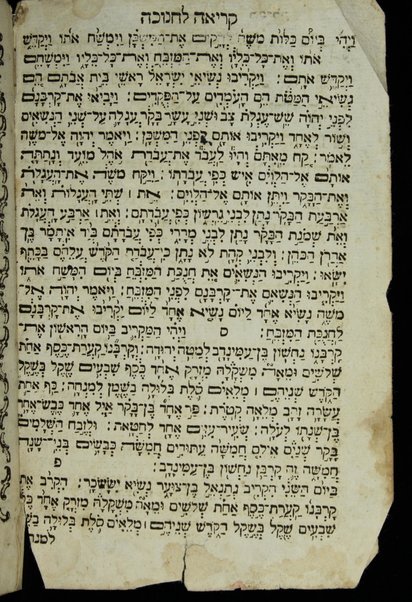 קריאה לחנוכה
וַיְהִי בְּיוֹם כַּלּוֹת מֹשֶׁה לְהָקִים אֶת־הַמִּשְׁכָּן וַיִּמְשַׁח אֹתוֹ וַיְקַדֵּשׁ
אֹתוֹ וְאֶת־כָּל־כֵּלָיו וְאֶת־הַמִּזְבֵּחַ וְאֶת־כָּל־כֵּלָיו וַיִּמְשָׁחֵם
וַיְקַדֵּשׁ אֹתָם׃ וַיַּקְרִיבוּ נְשִׂיאֵי יִשְׂרָאֵל רָאשֵׁי בֵּית אֲבֹתָם הֵם
נְשִׂיאֵי הַמַּטֹּת הֵם הָעֹמְדִים עַל־הַפְּקֻדִים׃ וַיָּבִיאוּ אֶת־קָרְבָּנָם
לִפְנֵי יְהוָה שֵׁשׁ־עֶגְלֹת צָב וּשְׁנֵי עָשָׂר בָּקָר עֲגָלָה עַל־שְׁנֵי הַנְּשִׂאִים
וְשׁוֹר לְאֶחָד וַיַּקְרִיבוּ אוֹתָם לִפְנֵי הַמִּשְׁכָּן׃ וַיֹּאמֶר יְהוָה אֶל־מֹשֶׁה
לֵּאמֹר׃ קַח מֵאִתָּם וְהָיוּ לַעֲבֹד אֶת־עֲבֹדַת אֹהֶל מוֹעֵד וְנָתַתָּה
אוֹתָם אֶל־הַלְוִיִּם אִישׁ כְּפִי עֲבֹדָתוֹ׃ וַיִּקַּח מֹשֶׁה אֶת־הָעֲגָלֹת
וְאֶת־הַבָּקָר וַיִּתֵּן אוֹתָם אֶל־הַלְוִיִּם׃ אֵת ׀ שְׁתֵּי הָעֲגָלוֹת וְאֵת
אַרְבַּעַת הַבָּקָר נָתַן לִבְנֵי גֵרְשׁוֹן כְּפִי עֲבֹדָתָם׃ וְאֵת ׀ אַרְבַּע הָעֲגָלֹת
וְאֵת שְׁמֹנַת הַבָּקָר נָתַן לִבְנֵי מְרָרִי כְּפִי עֲבֹדָתָם בְּיַד אִיתָמָר בֶּן־
אַהֲרֹן הַכֹּהֵן׃ וְלִבְנֵי קְהָת לֹא נָתָן כִּי־עֲבֹדַת הַקֹּדֶשׁ עֲלֵהֶם בַּכָּתֵף
יִשָּׂאוּ׃ וַיַּקְרִיבוּ הַנְּשִׂאִים אֵת חֲנֻכַּת הַמִּזְבֵּחַ בְּיוֹם הִמָּשַׁח אֹתוֹ
וַיַּקְרִיבוּ הַנְּשִׂיאִם אֶת־קָרְבָּנָם לִפְנֵי הַמִּזְבֵּחַ׃ וַיֹּאמֶר יְהוָה אֶל
מֹשֶׁה נָשִׂיא אֶחָד לַיּוֹם נָשִׂיא אֶחָד לַיּוֹם יַקְרִיבוּ אֶת־קָרְבָּנָם
לַחֲנֻכַּת הַמִּזְבֵּחַ׃ ס וַיְהִי הַמַּקְרִיב בַּיּוֹם הָרִאשׁוֹן אֶת־
קָרְבָּנוֹ נַחְשׁוֹן בֶּן־עַמִּינָדָב לְמַטֵּה יְהוּדָה׃ וְקָרְבָּנוֹ קַעֲרַת־כֶּסֶף אַחַת
שְׁלֹשִׁים וּמֵאָה מִשְׁקָלָהּ מִזְרָק אֶחָד כֶּסֶף שִׁבְעִים שֶׁקֶל בְּשֶׁקֶל
הַקֹּדֶשׁ שְׁנֵיהֶם ׀ מְלֵאִים סֹלֶת בְּלוּלָה בַשֶּׁמֶן לְמִנְחָה׃ כַּף אַחַת
עֲשָׂרָה זָהָב מְלֵאָה קְטֹרֶת׃ פַּר־אֶחָד בֶּן־בָּקָר אַיִל אֶחָד כֶּבֶשׂ־אֶחָד
בֶּן־שְׁנָתוֹ לְעֹלָה׃ שְׂעִיר־עִזִּים אֶחָד לְחַטָּאת׃ וּלְזֶבַח הַשְּׁלָמִים
בָּקָר שְׁנַיִם אֵילִם חֲמִשָּׁה עַתּוּדִים חֲמִשָּׁה כְּבָשִׂים בְּנֵי־שָׁנָה
חֲמִשָּׁה זֶה קָרְבַּן נַחְשׁוֹן בֶּן־עַמִּינָדָב׃ פ
בַּיּוֹם הַשֵּׁנִי הִקְרִיב נְתַנְאֵל בֶּן־צוּעָר נְשִׂיא יִשָּׂשכָר׃ הִקְרִב אֶת
קָרְבָּנוֹ קַעֲרַת־כֶּסֶף אַחַת שְׁלֹשִׁים וּמֵאָה מִשְׁקָלָהּ מִזְרָק אֶחָד
שִׁבְעִים שֶׁקֶל בְּשֶׁקֶל הַקֹּדֶשׁ שְׁנֵיהֶם ׀ מְלֵאִים סֹלֶת בְּלוּלָה